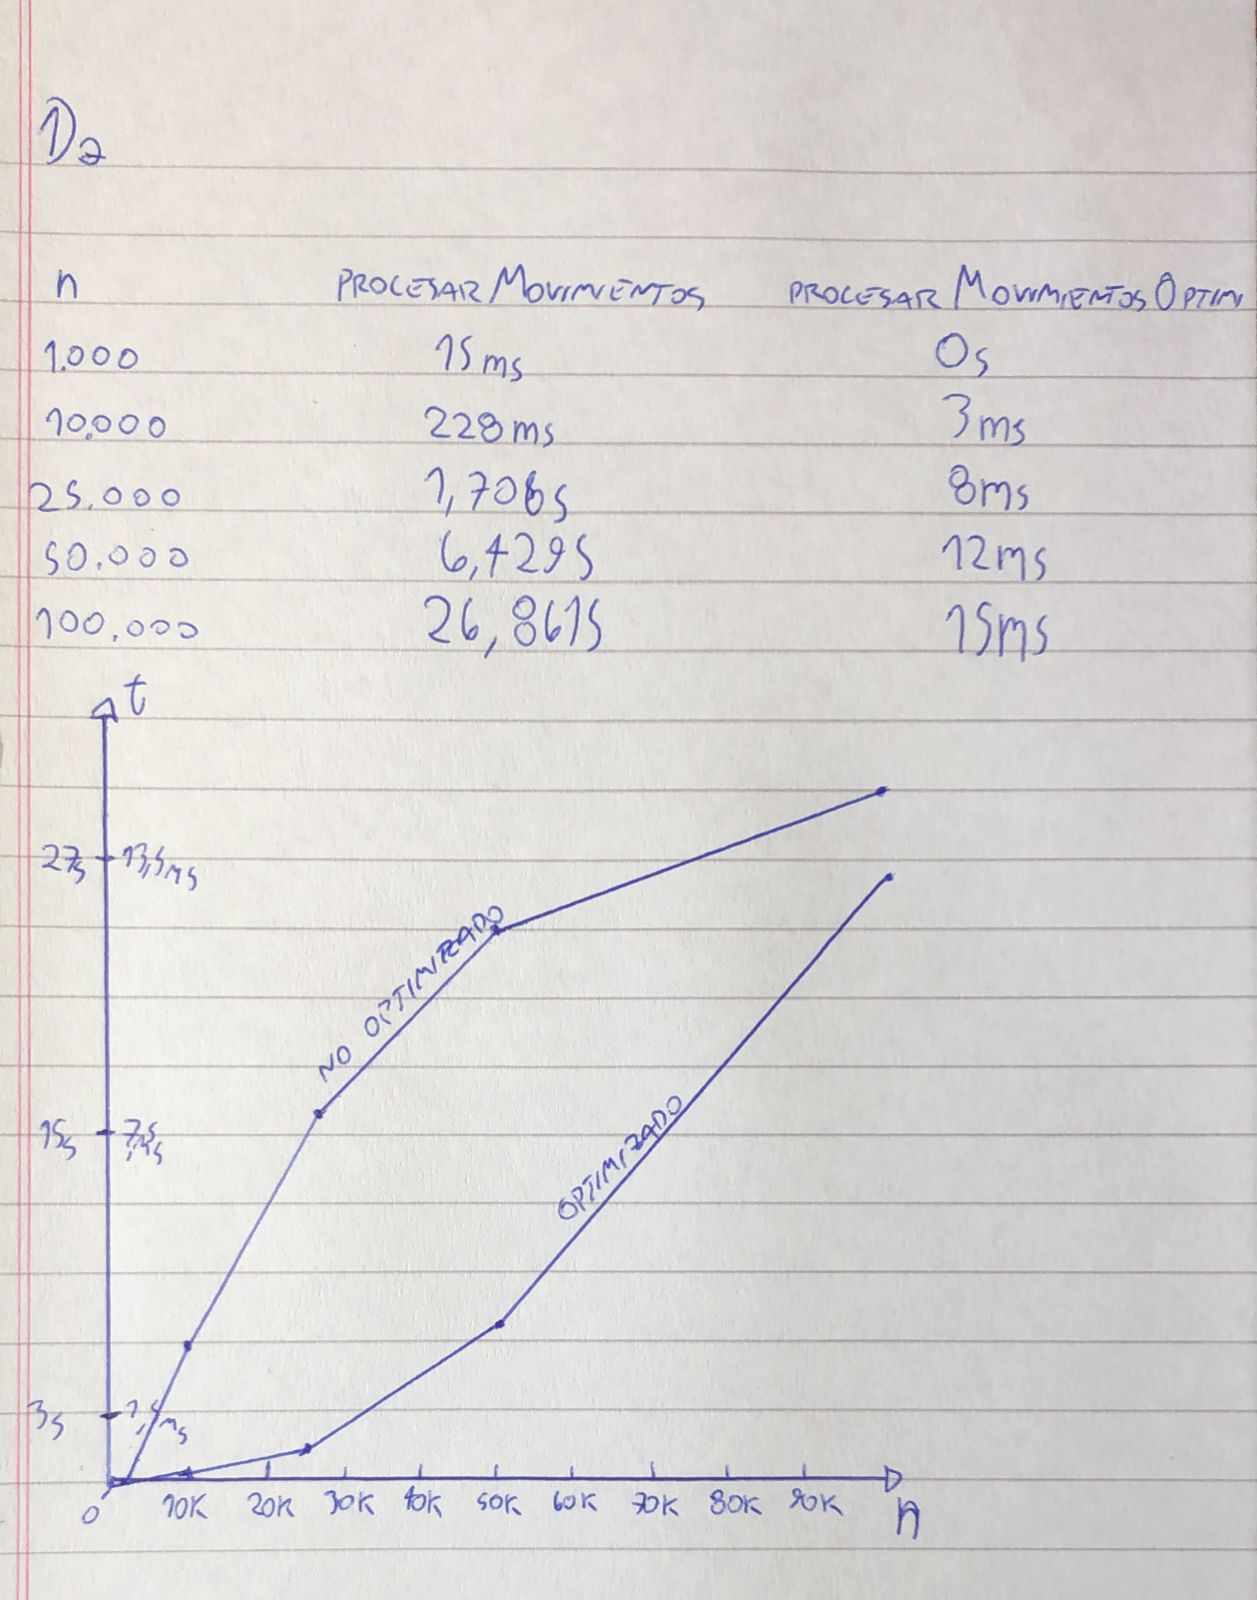 D2
n PROCESAR MOVIMIENTOS PROCESAR MOVIMIENTOS OPTIM
1.000 15ms 0s
10.000 228ms 3ms
25.000 1,706s 8ms
50.000 6,429s 12ms
100.000 26,861s 15ms
t
27s 13,5ms
NO OPTIMIZADO
15s 7,5ms
OPTIMIZADO
3s 1,5ms
0 10K 20K 30K 40K 50K 60K 70K 80K 90K n